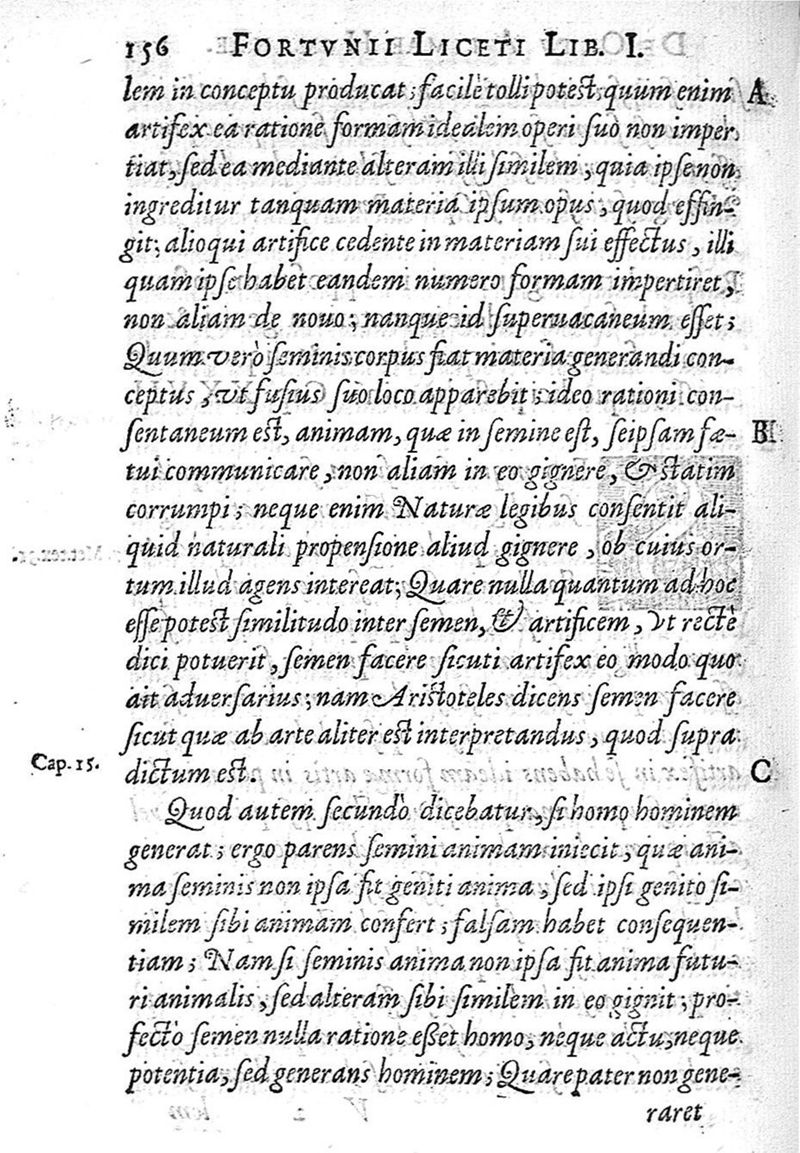 156 FORTVNII LICETI LIB. I.
lem in conceptu producat; facilè tolli potest; quum enim A
artifex ea ratione formam idealem operi suo non imper
tiat, sed ea mediante alteram illi similem, quia ipse non
ingreditur tanquam materia ipsum opus, quod effin-
git; alioqui artifice cedente in materiam sui effectus, illi
quam ipse habet eandem numero formam impertiret,
non aliam de nouo; nanque id superuacaneum esset;
Quum verò seminis corpus fiat materia generandi con-
ceptus, vt fusius suo loco apparebit; ideo rationi con-
sentaneum est, animam, quæ in semine est, seipsam fæ- B
tui communicare, non aliam in eo gignere, & statim
corrumpi; neque enim Naturæ legibus consentit ali-
quid naturali propensione aliud gignere, ob cuius or-
tum illud agens intereat; Quare nulla quantum ad hoc
esse potest similitudo inter semen, & artificem, vt rectè
dici potuerit, semen facere sicuti artifex eo modo quo
ait aduersarius; nam Aristoteles dicens semen facere
sicut quæ ab arte aliter est interpretandus, quod supra
Cap. 15. dictum est. C
Quod autem secundò dicebatur, si homo hominem
generat; ergo parens semini animam iniecit, quæ ani-
ma seminis non ipsa fit geniti anima, sed ipsi genito si-
milem sibi animam confert; falsam habet consequen-
tiam; Nam si seminis anima non ipsa fit anima futu-
ri animalis, sed alteram sibi similem in eo gignit; pro-
fectò semen nulla ratione esset homo, neque actu, neque
potentia, sed generans hominem; Quare pater non gene-
raret